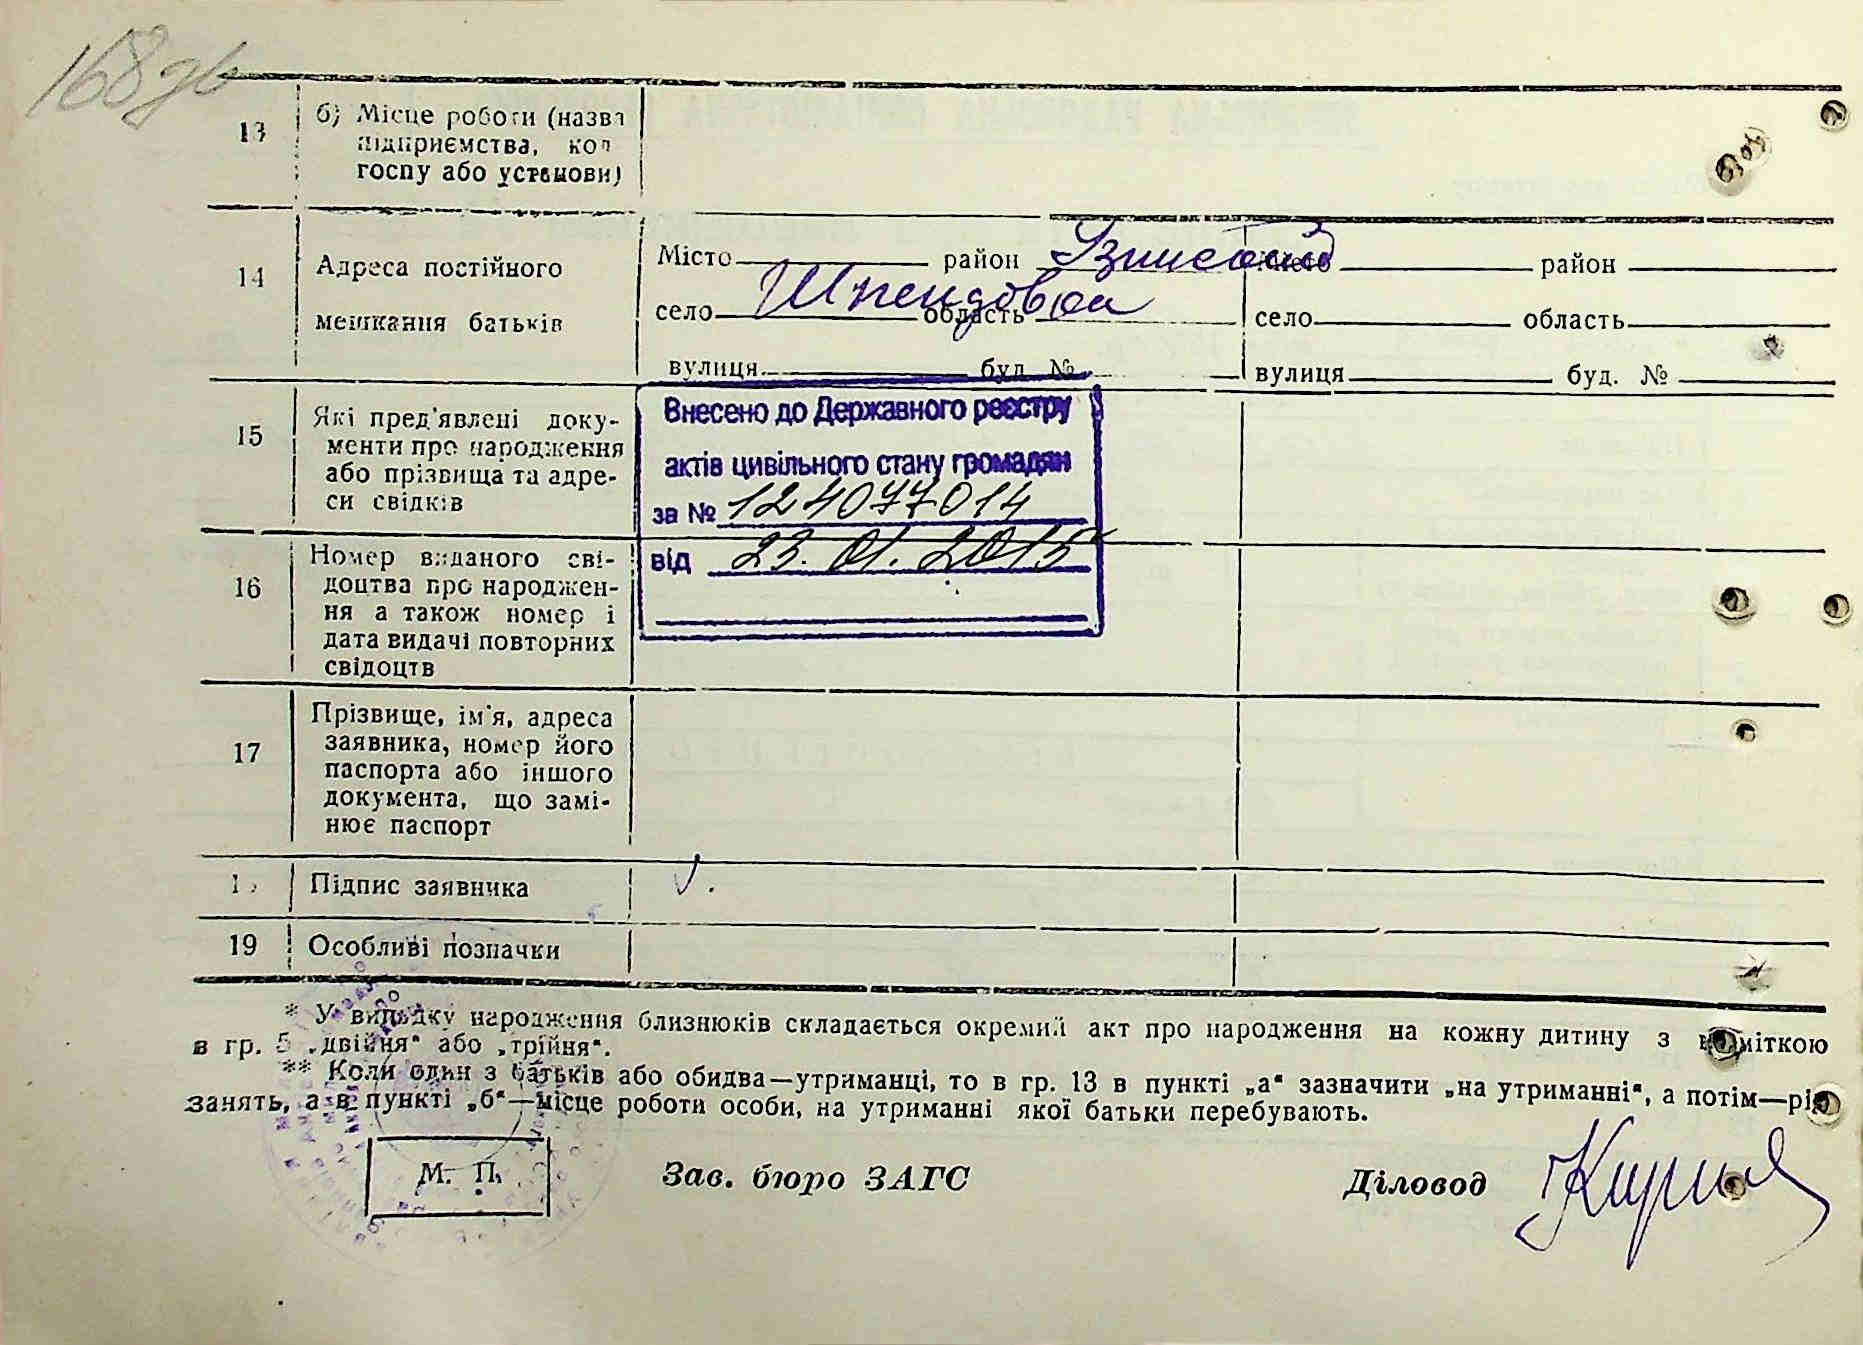 168 зв
13
б) Місце роботи (назва
підприємства, кол
госпу або установи)
14
Адреса постійного
мешкання батьків
Місто район місто район
село Шпендовка область село область
вулиця буд. № вулиця буд. №
15
Які пред'явлені доку-
менти про народження
або прізвища та адре-
си свідків
Внесено до Державного реєстру
актів цивільного стану громадян
за № 124077014
від 23.01.2015
16
Номер виданого сві-
доцтва про народжен-
ня а також номер і
дата видачі повторних
свідоцтв
17
Прізвище, ім'я, адреса
заявника, номер його
паспорта або іншого
документа, що замі-
нює паспорт
Підпис заявника
19
Особливі позначки
* У випадку народження близнюків складається окремий акт про народження на кожну дитину з відміткою
в гр. 5 „двійня“ або „трійня“.
** Коли один з батьків або обидва—утриманці, то в гр. 13 в пункті „а“ зазначити „на утриманні“, а потім—рід
занять, а в пункті „б“—місце роботи особи, на утриманні якої батьки перебувають.
М. П.
Зав. бюро ЗАГС
Діловод